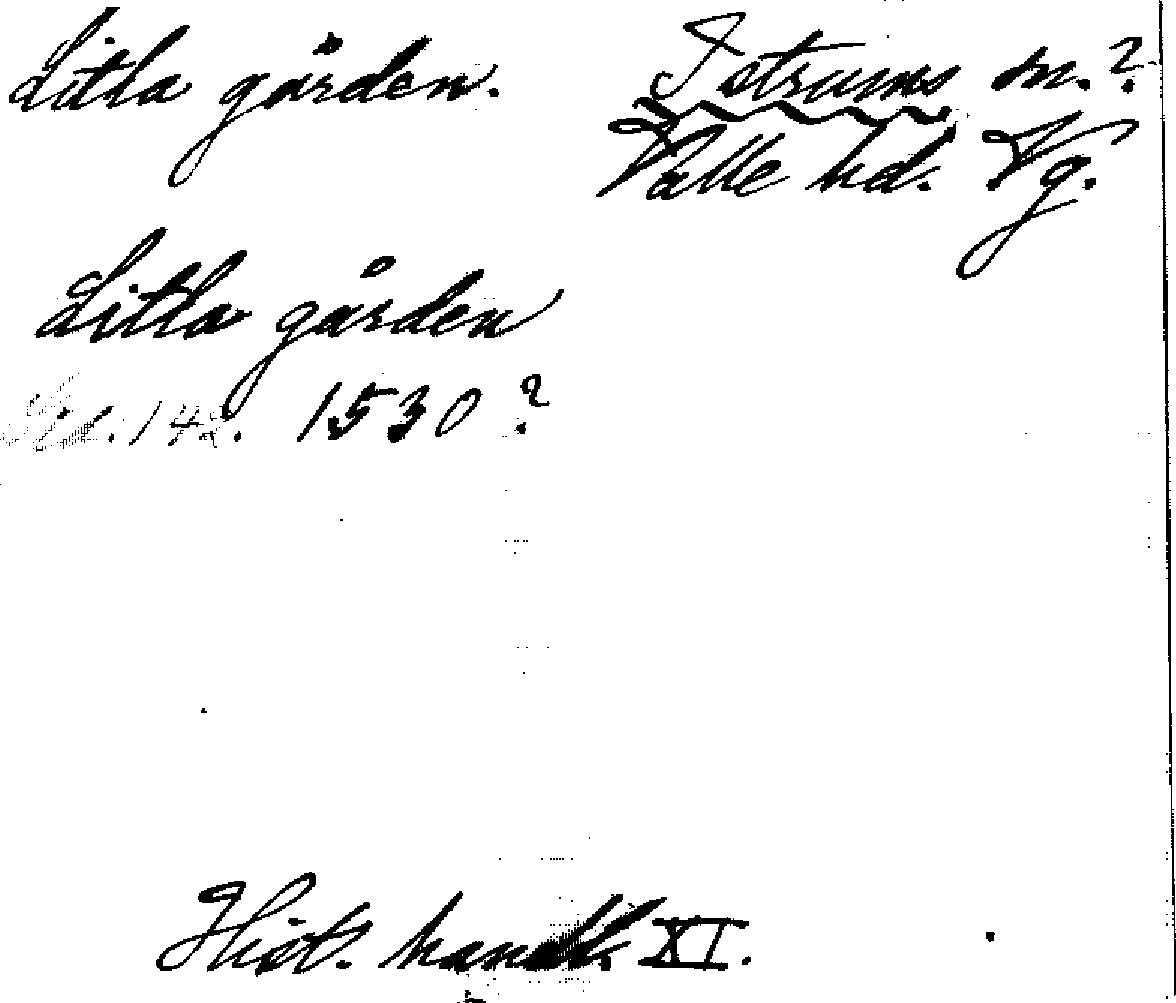 Litla gården. Istrums sn.?
Valle hd. Vg.
Litla gården
142. 1530?
Hist. handl. XI.